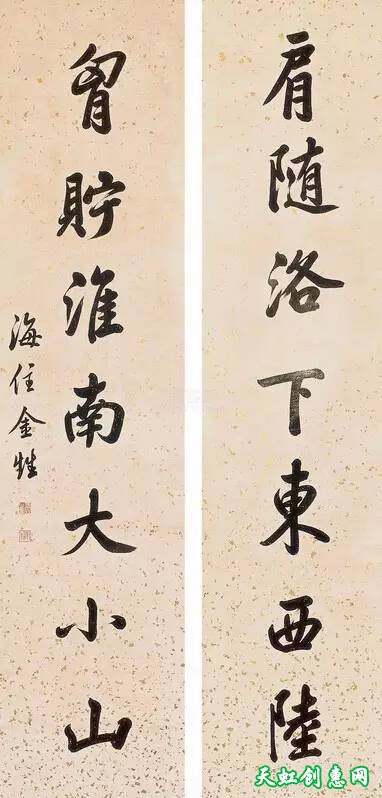 肩随洛下東西陸
胷貯淮南大小山
海住金甡
天虹创惠网